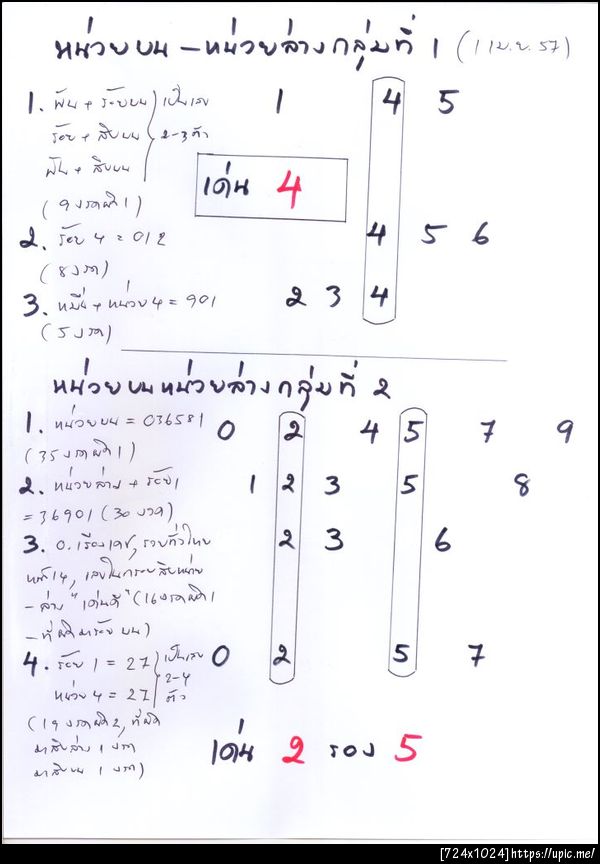 หน่วยบน - หน่วยล่างกลุ่มที่ 1 (1 เม.ย. 57)
1. พัน + ร้อยบน เป็นเลข 1 4 5
ร้อย + สิบบน 2-3 ตัว
พัน + สิบบน
เด่น 4
(9 งวดผิด 1)
2. ร้อย 4 = 012 4 5 6
(8 งวด)
3. หมื่น + หน่วย 4 = 901 2 3 4
(5 งวด)
หน่วยบนหน่วยล่างกลุ่มที่ 2
1. หน่วยบน = 036581 0 2 4 5 7 9
(35 งวดผิด 1)
2. หน่วยล่าง + ร้อย 1 2 3 5 8
= 36901 (30 งวด)
3. 0. เรียงเบอร์, รวยทั่วไทย 2 3 6
14, เลขในกรอบสิบหน่วย
- ล่าง "เด่นดี" (16 งวดผิด 1
- ที่ผิดมาร้อยบน)
4. ร้อย 1 = 27 เป็นเลข 0 2 5 7
หน่วย 4 = 27 2-4
ตัว
(19 งวดผิด 2, ที่ผิด
มาสิบล่าง 1 งวด
มาสิบบน 1 งวด)
เด่น 2 รอง 5
[724x1024]https://upic.me/